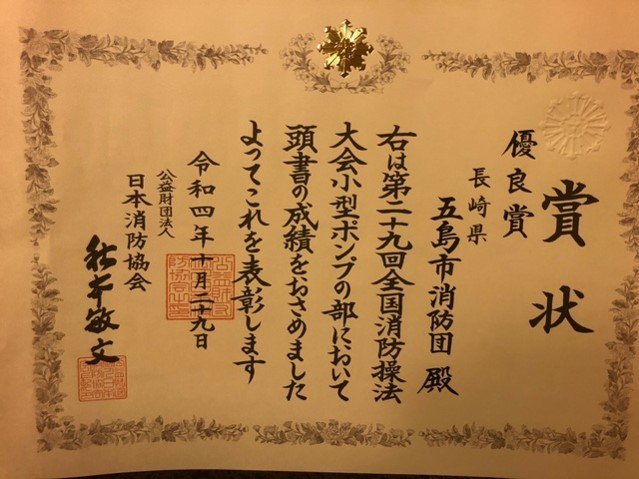 賞状
優良賞
長崎県
五島市消防団 殿
右は第二十九回全国消防操法
大会小型ポンプの部において
頭書の成績をおさめました
よってこれを表彰します
令和四年十月二十九日
公益財団法人
日本消防協会
秋本敏文